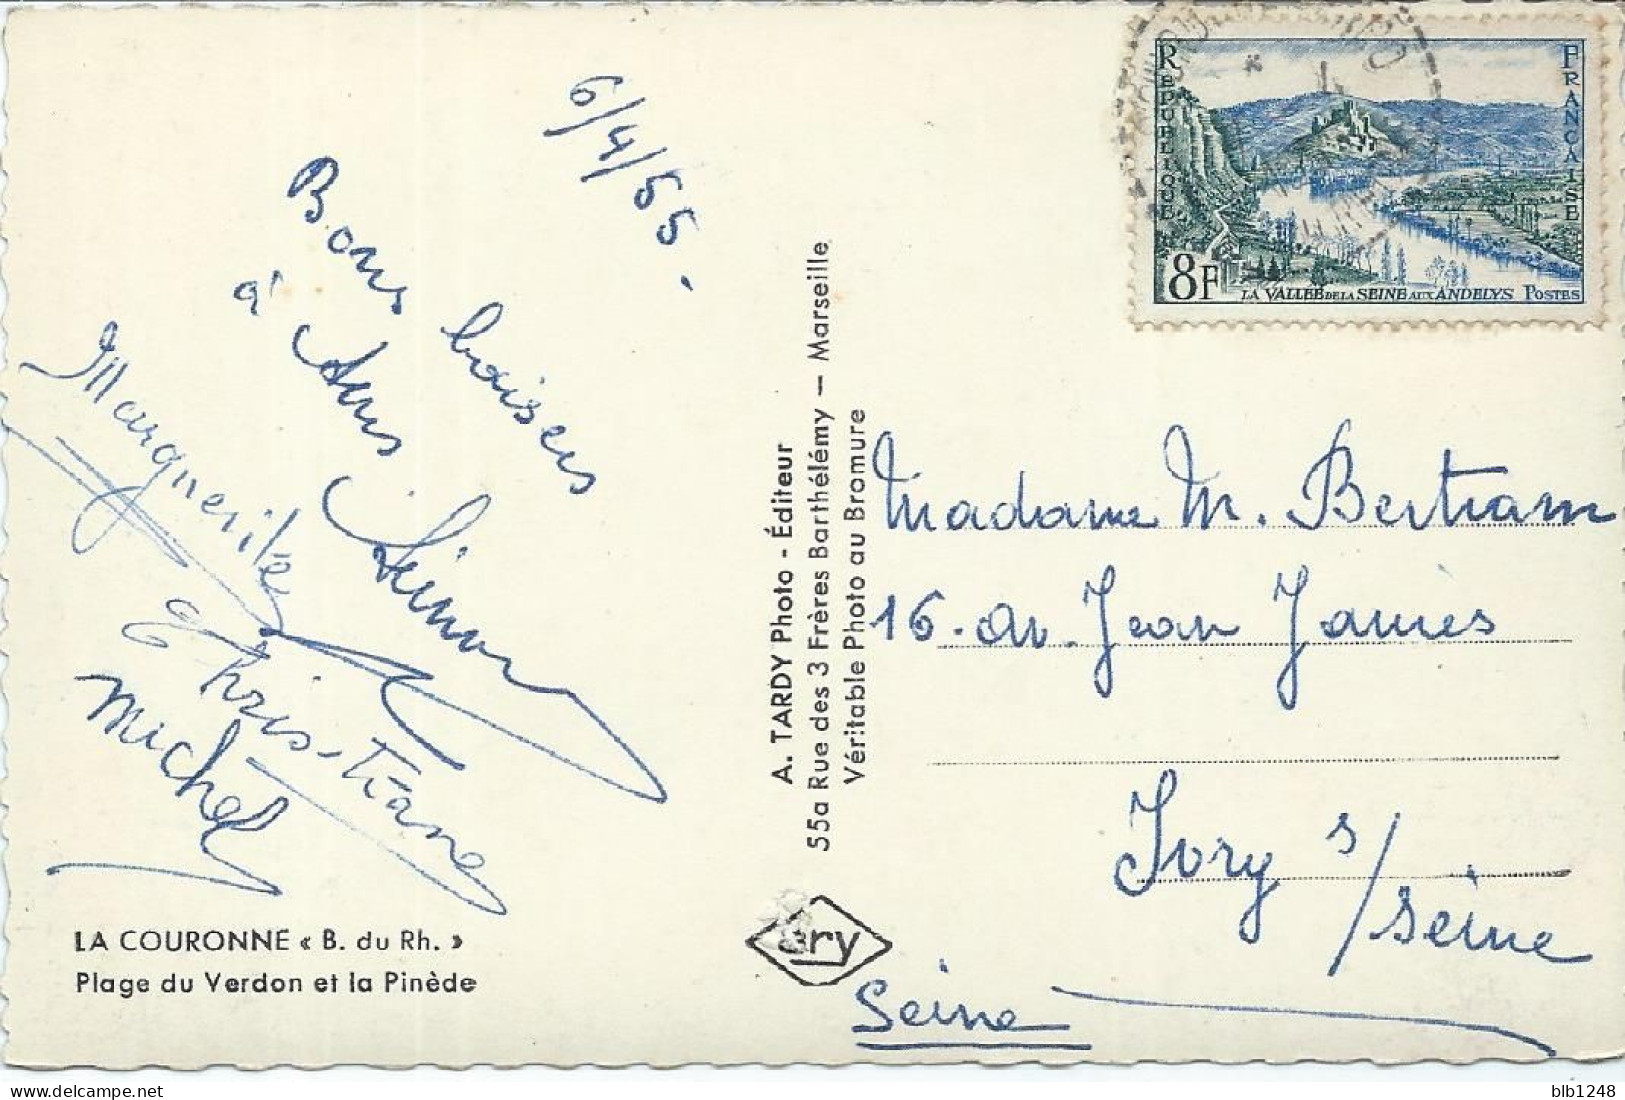 6/4/55.
Bons baisers
à tous
Simon
Marguerite
Christiane
Michel
LA COURONNE « B. du Rh. »
Plage du Verdon et la Pinède
A. TARDY Photo - Éditeur
55a Rue des 3 Frères Barthélémy — Marseille
Véritable Photo au Bromure
ry
RÉPUBLIQUE
FRANÇAISE
8F LA VALLÉE DE LA SEINE AUX ANDELYS POSTES
Madame M. Bertram
16. av. Jean Jaurès
Ivry s/Seine
Seine
blb1248